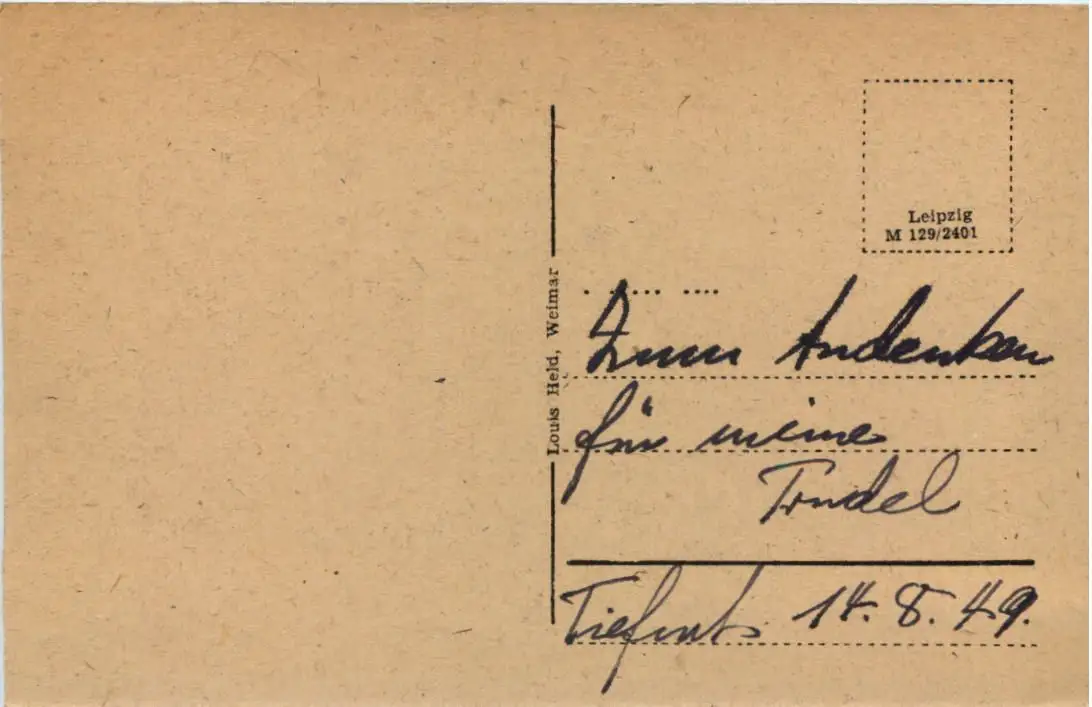 Leipzig
M 129/2401
Louis Held, Weimar
Zum Andenken
für meine
Trudel
Tiefurt 14.8.49.